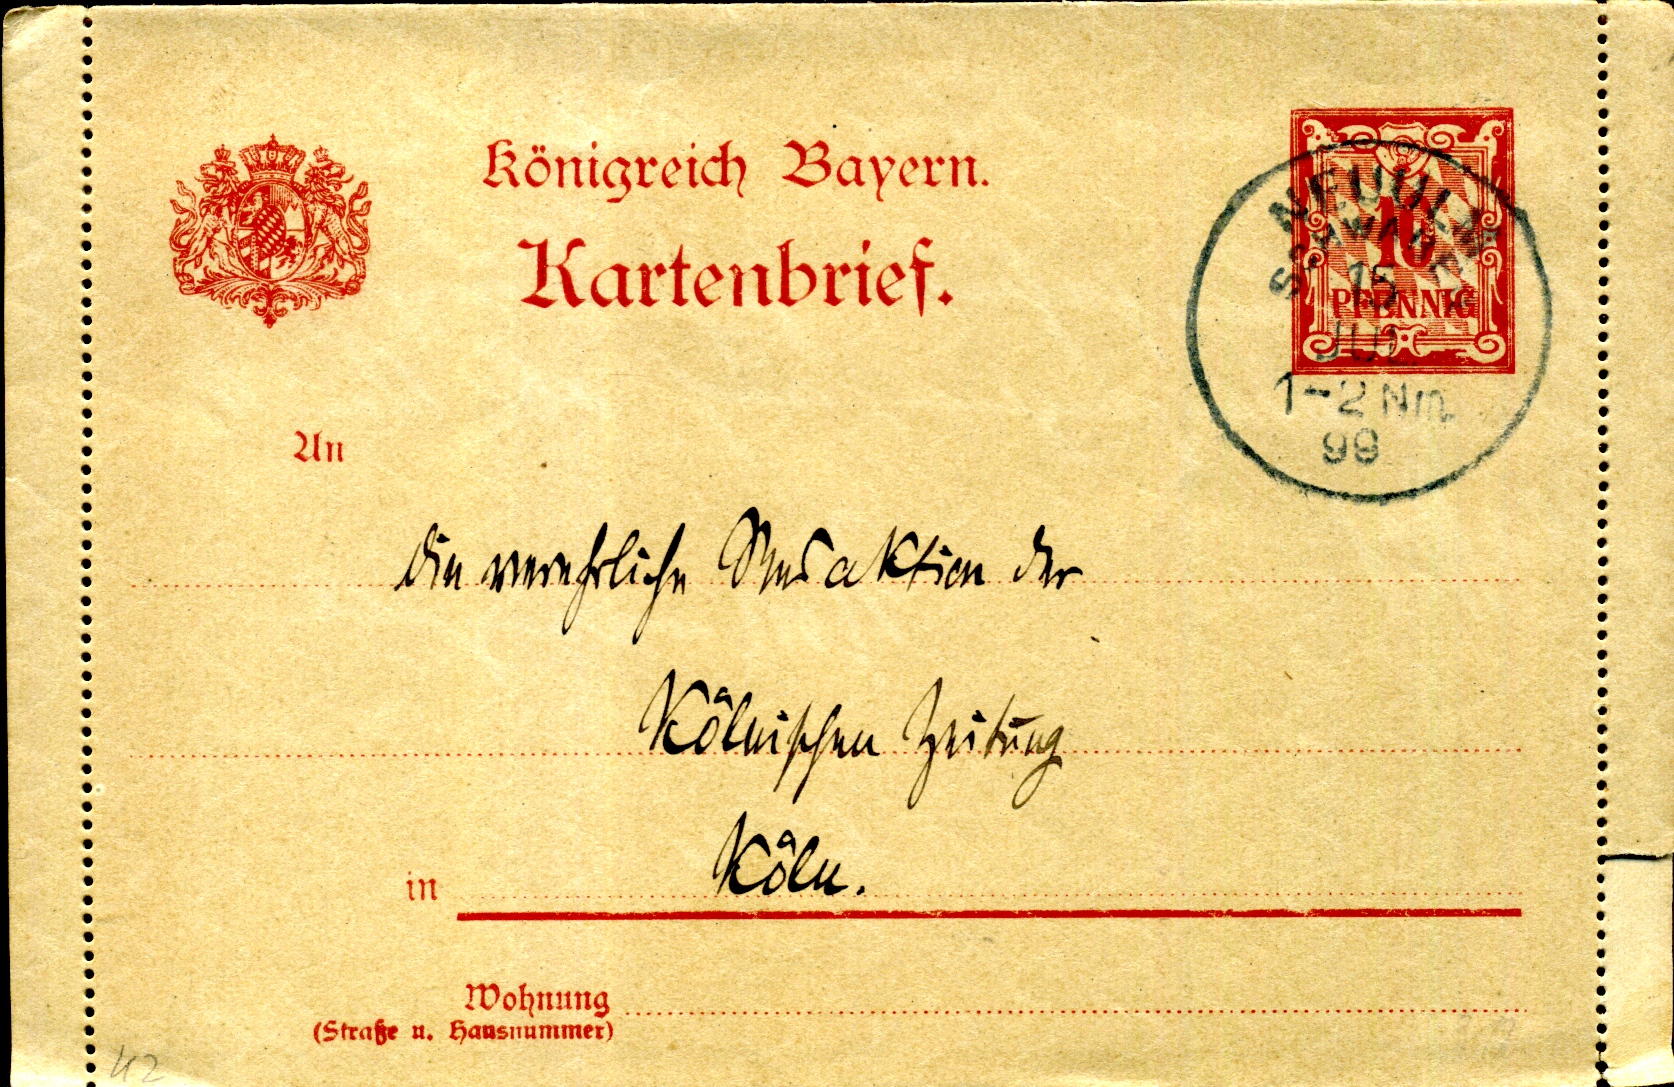 Königreich Bayern.
Kartenbrief.
10
PFENNIG
NEUULM
15
JUL
1-2 Nm.
99
An
die verehrliche Redaktion der
Kölnischen Zeitung
in Köln.
Wohnung
(Straße u. Hausnummer)
42